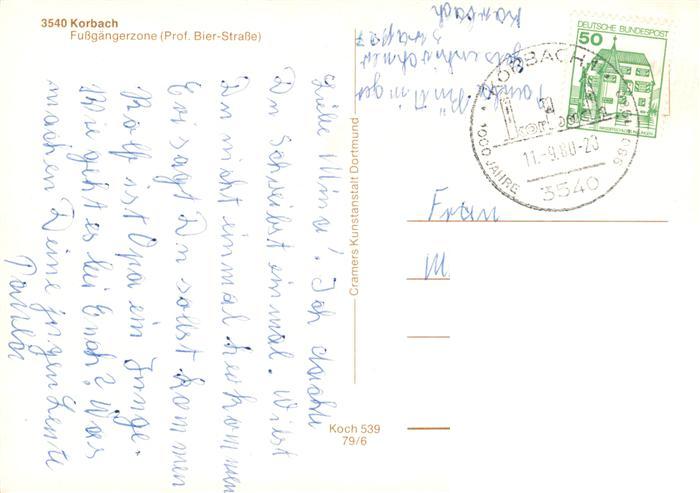 3540 Korbach
Fußgängerzone (Prof. Bier-Straße)
Korbach
DEUTSCHE BUNDESPOST
50
KORBACH 1
1000 JAHRE
11.-9.80-20
3540
Liebe Mina! Ich dachte
Du schreibst einmal. Willst
Du nicht einmal herkommen
Er sagt Du sollst kommen
Rolf ist Opa ein Junge.
Wie geht es bei Euch? Was
machen Deine jungen Leute
Paula
Cramers Kunstanstalt Dortmund
Koch 539
79/6
Frau
M.